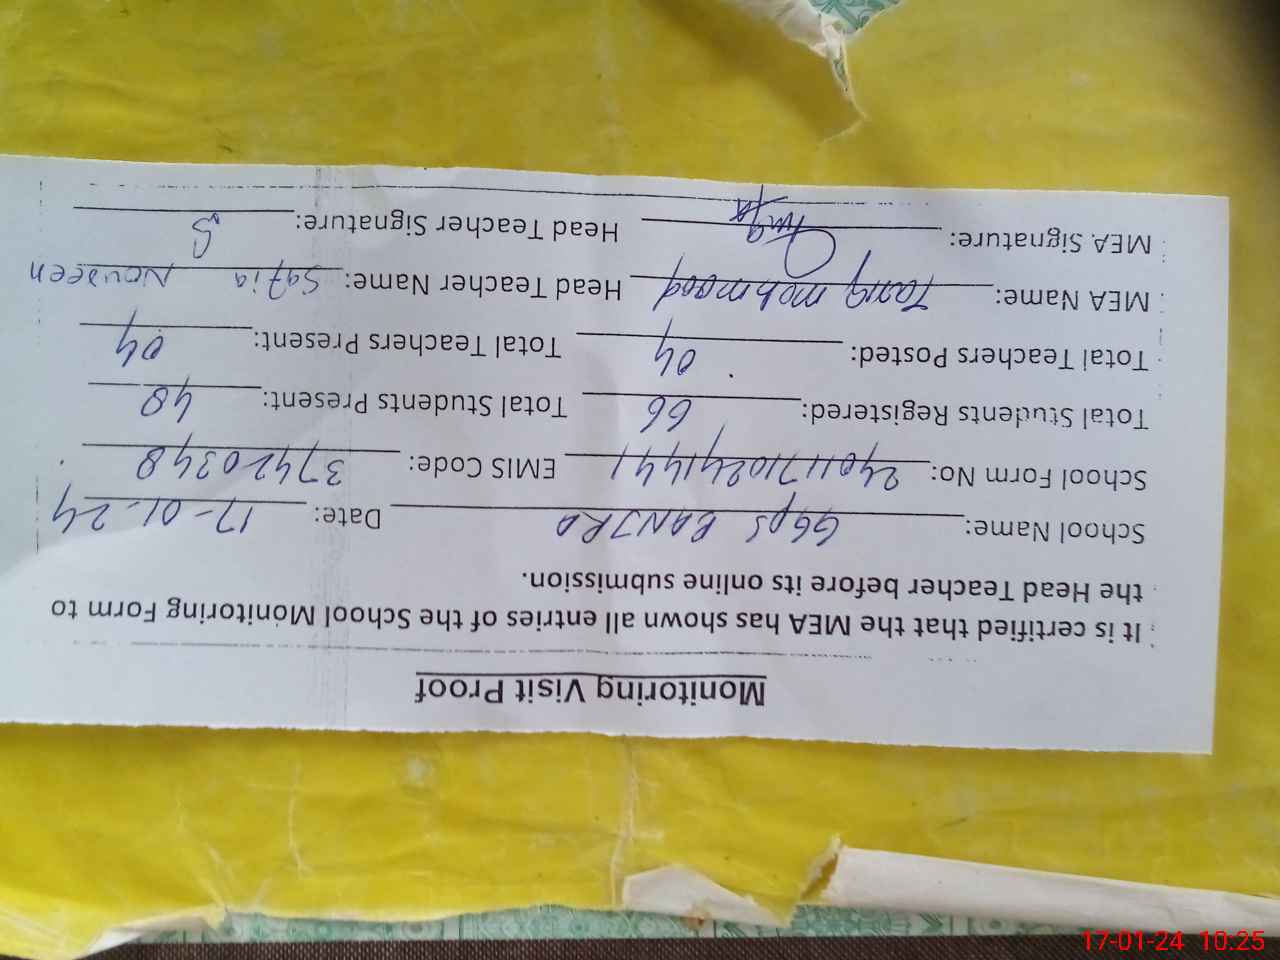 Monitoring Visit Proof
It is certified that the MEA has shown all entries of the School Monitoring Form to
the Head Teacher before its online submission.
School Name: GGPS BANJRA Date: 17-01-24
School Form No: 24011710241441 EMIS Code: 37420348
Total Students Registered: 66 Total Students Present: 48
Total Teachers Posted: 04 Total Teachers Present: 04
MEA Name: Tariq mehmood Head Teacher Name: Safia Nouseen
MEA Signature: Head Teacher Signature:
17-01-24 10:25